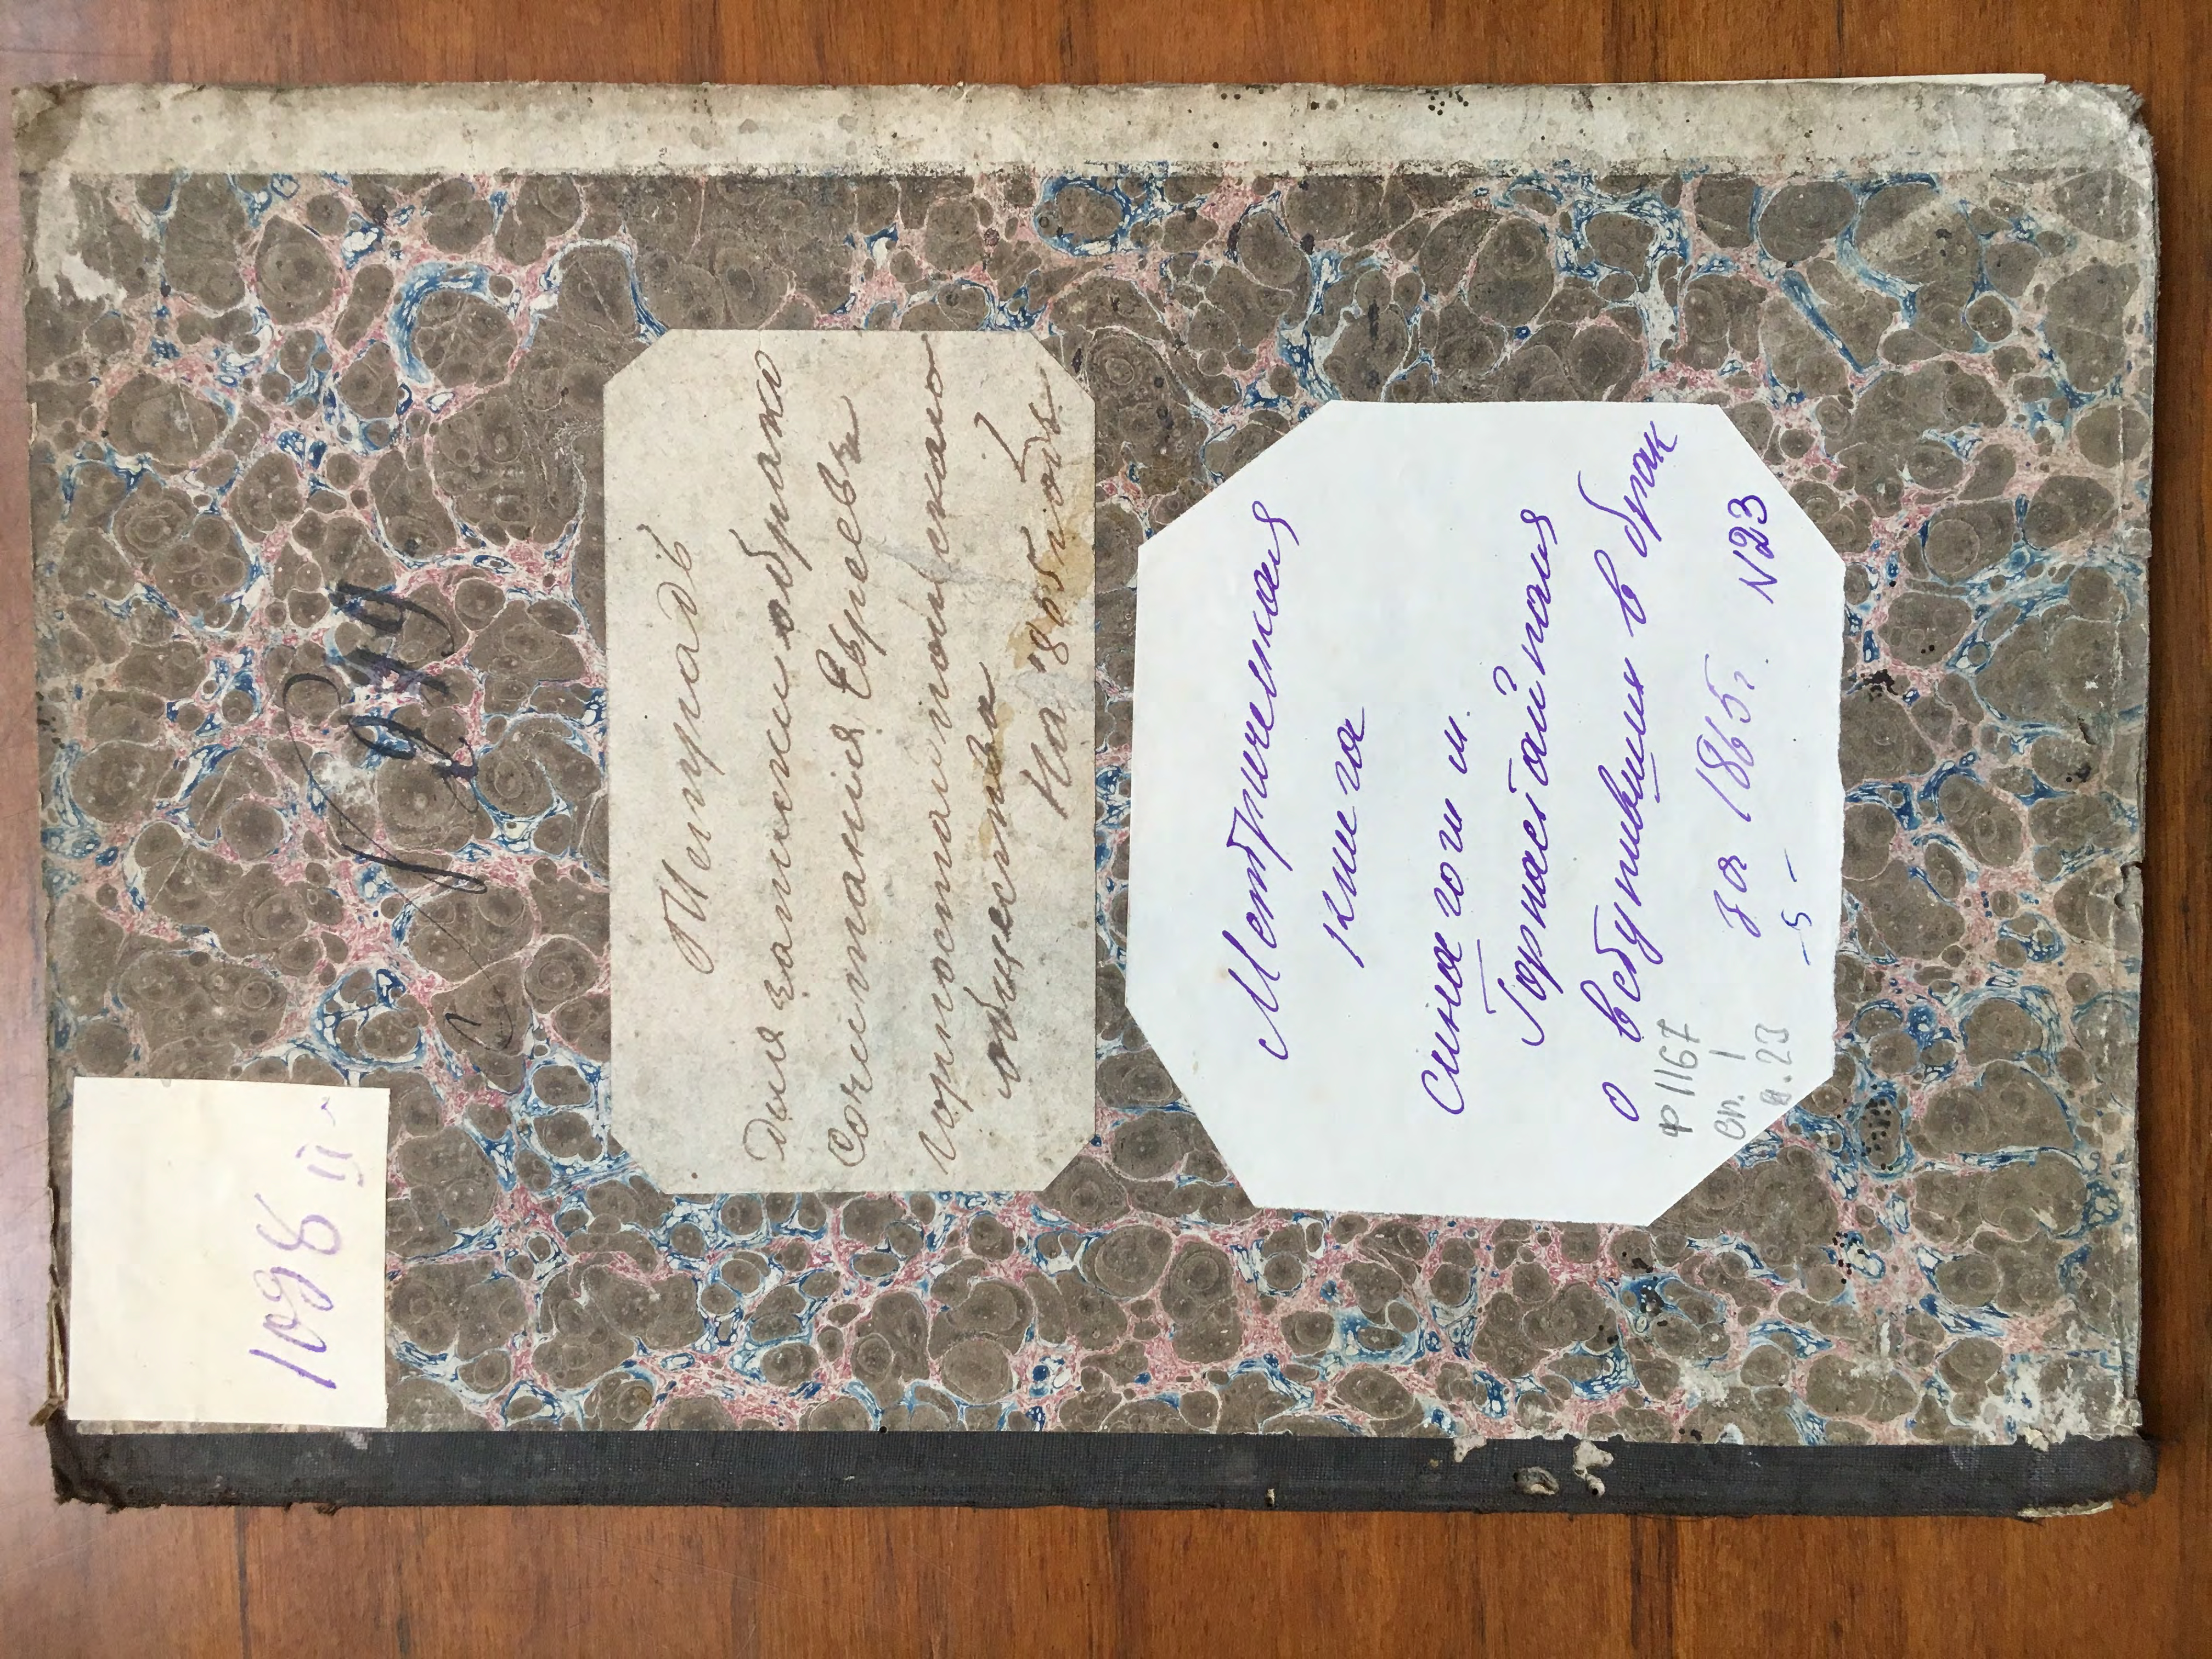 1098 II
N 299
Тетрадь
Для записки обрако
Сочитания Евреевъ
горностайпольскаго
общества
На 1865 годъ
Метрическая
книга
синагоги м.
Горностайполя
о вступивших в брак
за 1865 г.
N 23
-5-
ф 1167
оп. 1
н. 23